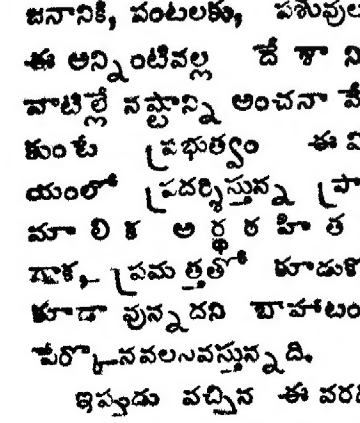 జనానికి, పంటలకు, పశువుల
ఈ అన్నింటివల్ల దే శా ని
వాటిల్లే నష్టాన్ని అంచనా వే
కుంటే ప్రభుత్వం ఈ వి
యంలో ప్రదర్శిస్తున్న ప్రా
మా లి క అ ర్థ ర హి త
గాక, ప్రమ త్తతో కూడుకొ
కూడా వున్నదని బాహాటం
పేర్కొనవలసివస్తున్నది.
ఇప్పుడు వచ్చిన ఈ వరద